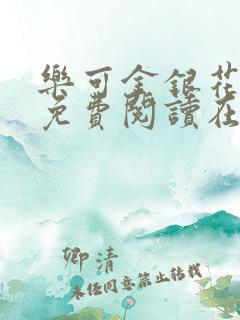 樂可金銀花
免費閱讀在
卿清
未经同意禁止转载